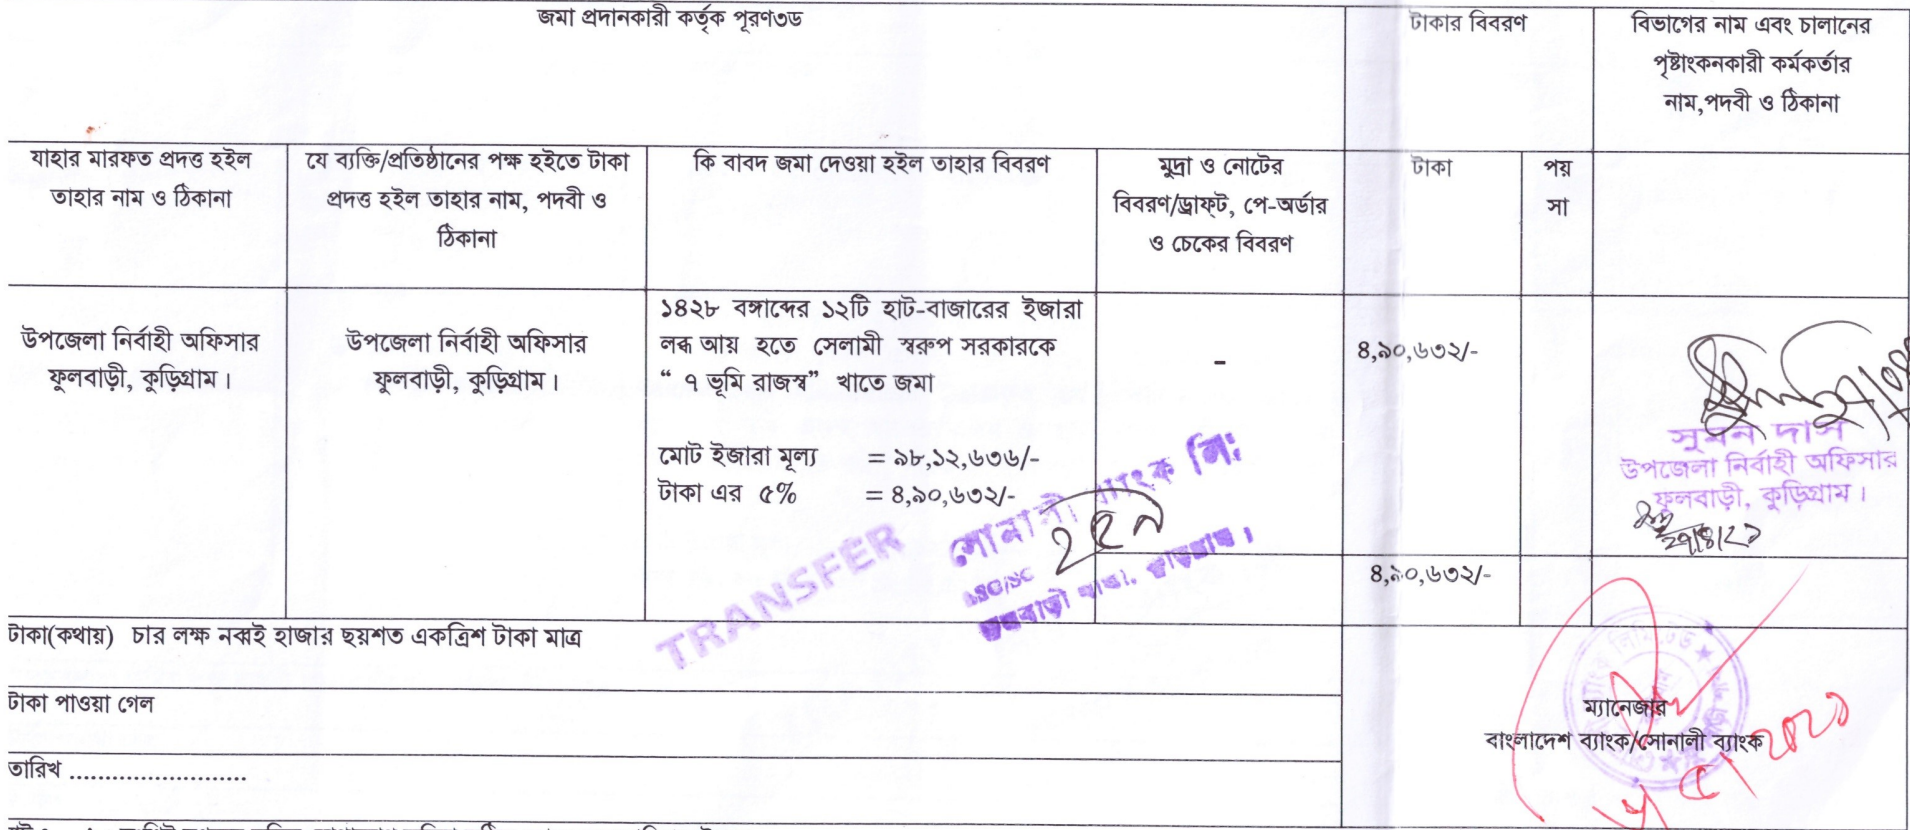 জমা প্রদানকারী কর্তৃক পূরণ৩ড
টাকার বিবরণ
বিভাগের নাম এবং চালানের
পৃষ্টাংকনকারী কর্মকর্তার
নাম,পদবী ও ঠিকানা
যাহার মারফত প্রদত্ত হইল
তাহার নাম ও ঠিকানা
যে ব্যক্তি/প্রতিষ্ঠানের পক্ষ হইতে টাকা
প্রদত্ত হইল তাহার নাম, পদবী ও
ঠিকানা
কি বাবদ জমা দেওয়া হইল তাহার বিবরণ
মুদ্রা ও নোটের
বিবরণ/ড্রাফ্‌ট, পে-অর্ডার
ও চেকের বিবরণ
টাকা
পয়
সা
উপজেলা নির্বাহী অফিসার
ফুলবাড়ী, কুড়িগ্রাম।
উপজেলা নির্বাহী অফিসার
ফুলবাড়ী, কুড়িগ্রাম।
১৪২৮ বঙ্গাব্দের ১২টি হাট-বাজারের ইজারা
লব্ধ আয় হতে সেলামী স্বরুপ সরকারকে
“ ৭ ভূমি রাজস্ব” খাতে জমা
মোট ইজারা মূল্য = ৯৮,১২,৬৩৬/-
টাকা এর ৫% = ৪,৯০,৬৩২/-
-
৪,৯০,৬৩২/-
সুমন দাস
উপজেলা নির্বাহী অফিসার
ফুলবাড়ী, কুড়িগ্রাম।
২৭/৪/২১
TRANSFER
সোনালী ব্যাংক লি:
ফুলবাড়ী শাখা, কুড়িগ্রাম।
৪,৯০,৬৩২/-
টাকা(কথায়) চার লক্ষ নব্বই হাজার ছয়শত একত্রিশ টাকা মাত্র
টাকা পাওয়া গেল
ম্যানেজার
বাংলাদেশ ব্যাংক/সোনালী ব্যাংক
তারিখ .........................